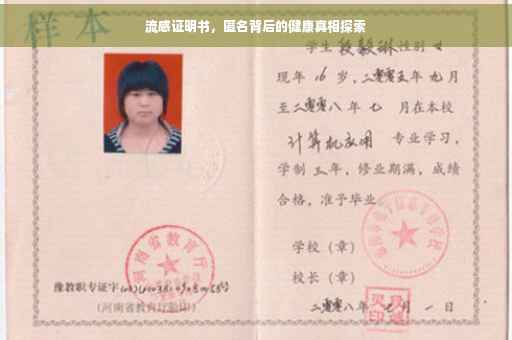 流感证明书，匿名背后的健康真相探索
样本
学生段毅琳性别女
现年16岁，二零零五年九月
至二零零八年七月在本校
计算机应用专业学习，
学制三年，修业期满，成绩
合格，准予毕业
学校（章）
校长（章）
二零零八年七月一日
河南省教育厅
豫教职专证字
（河南省教育厅验印）